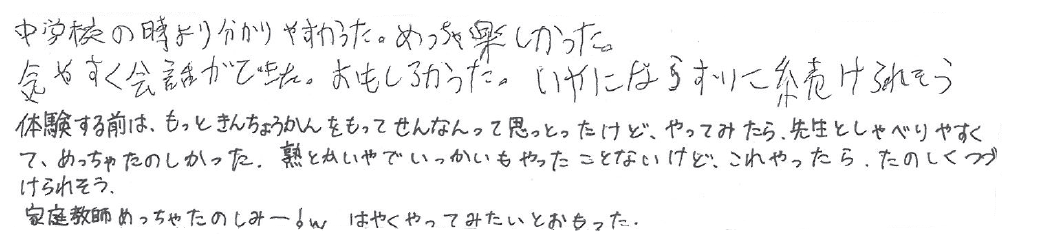 中学校の時より分かりやすかった。めっちゃ楽しかった。
気やすく会話ができた。おもしろかった。いやにならずに続けられそう
体験する前は、もっときんちょうかんをもってせんなんって思っとったけど、やってみたら、先生としゃべりやすく
て、めっちゃたのしかった。熟とかいやでいっかいもやったことないけど、これやったら、たのしくつづ
けられそう。
家庭教師めっちゃたのしみー！w はやくやってみたいとおもった。